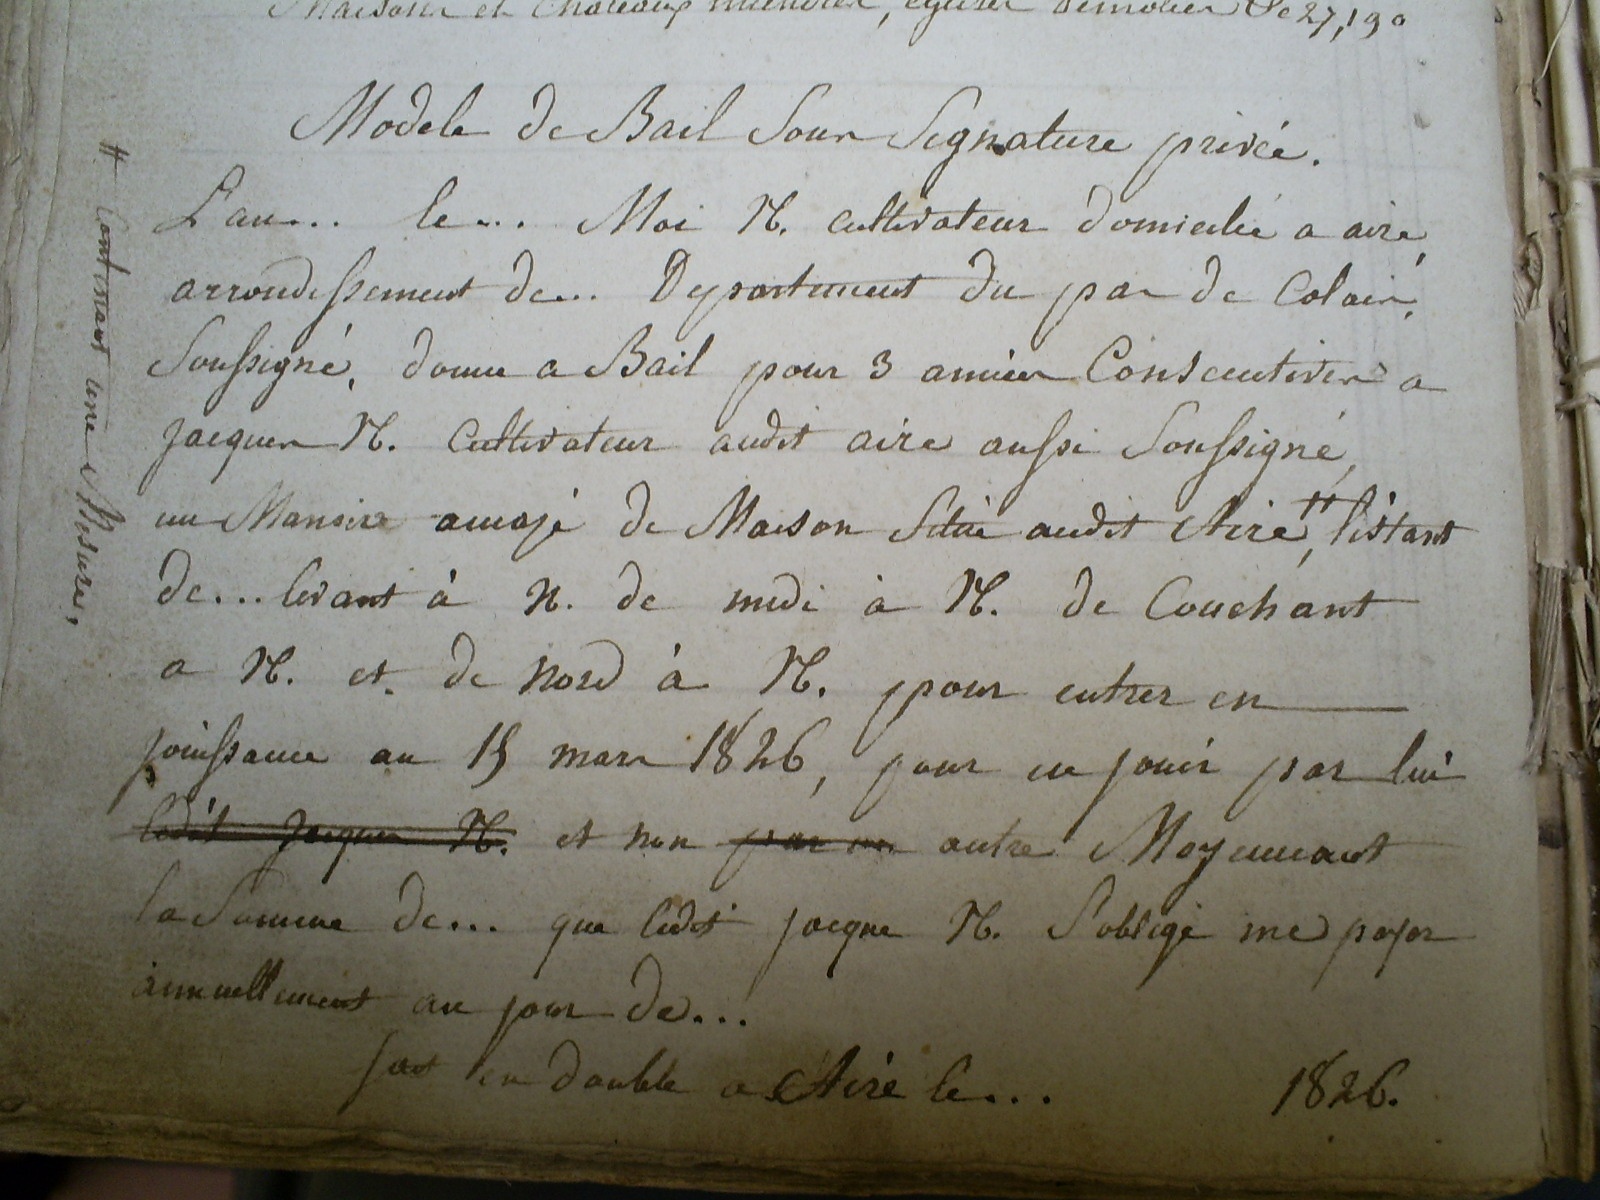 Maisons et Chateaux incendiés, églises démolies &c 27,190
Modele de Bail Sous Signature privée.
L'an... le... Moi N. cultivateur domicilié a aire,
arrondissement de... Departement du pas de Calais,
Soussigné, donne a Bail pour 3 années Consecutives a
jacques N. Cultivateur audit aire aussi Soussigné,
un Manoire amazé de Maison Situé audit Aire, # listant
de... levant à N. de midi à N. de Couchant
a N. et de nord à N. pour entrer en
jouissance au 15 mars 1826, pour en jouir par lui
ledit Jacques N. et non par un autre Moyennant
la Somme de... que ledit jacque N. S'oblige me payer
annuellement au jour de...
fait en double a Aire le... 1826.
# Contenant une Mesure,